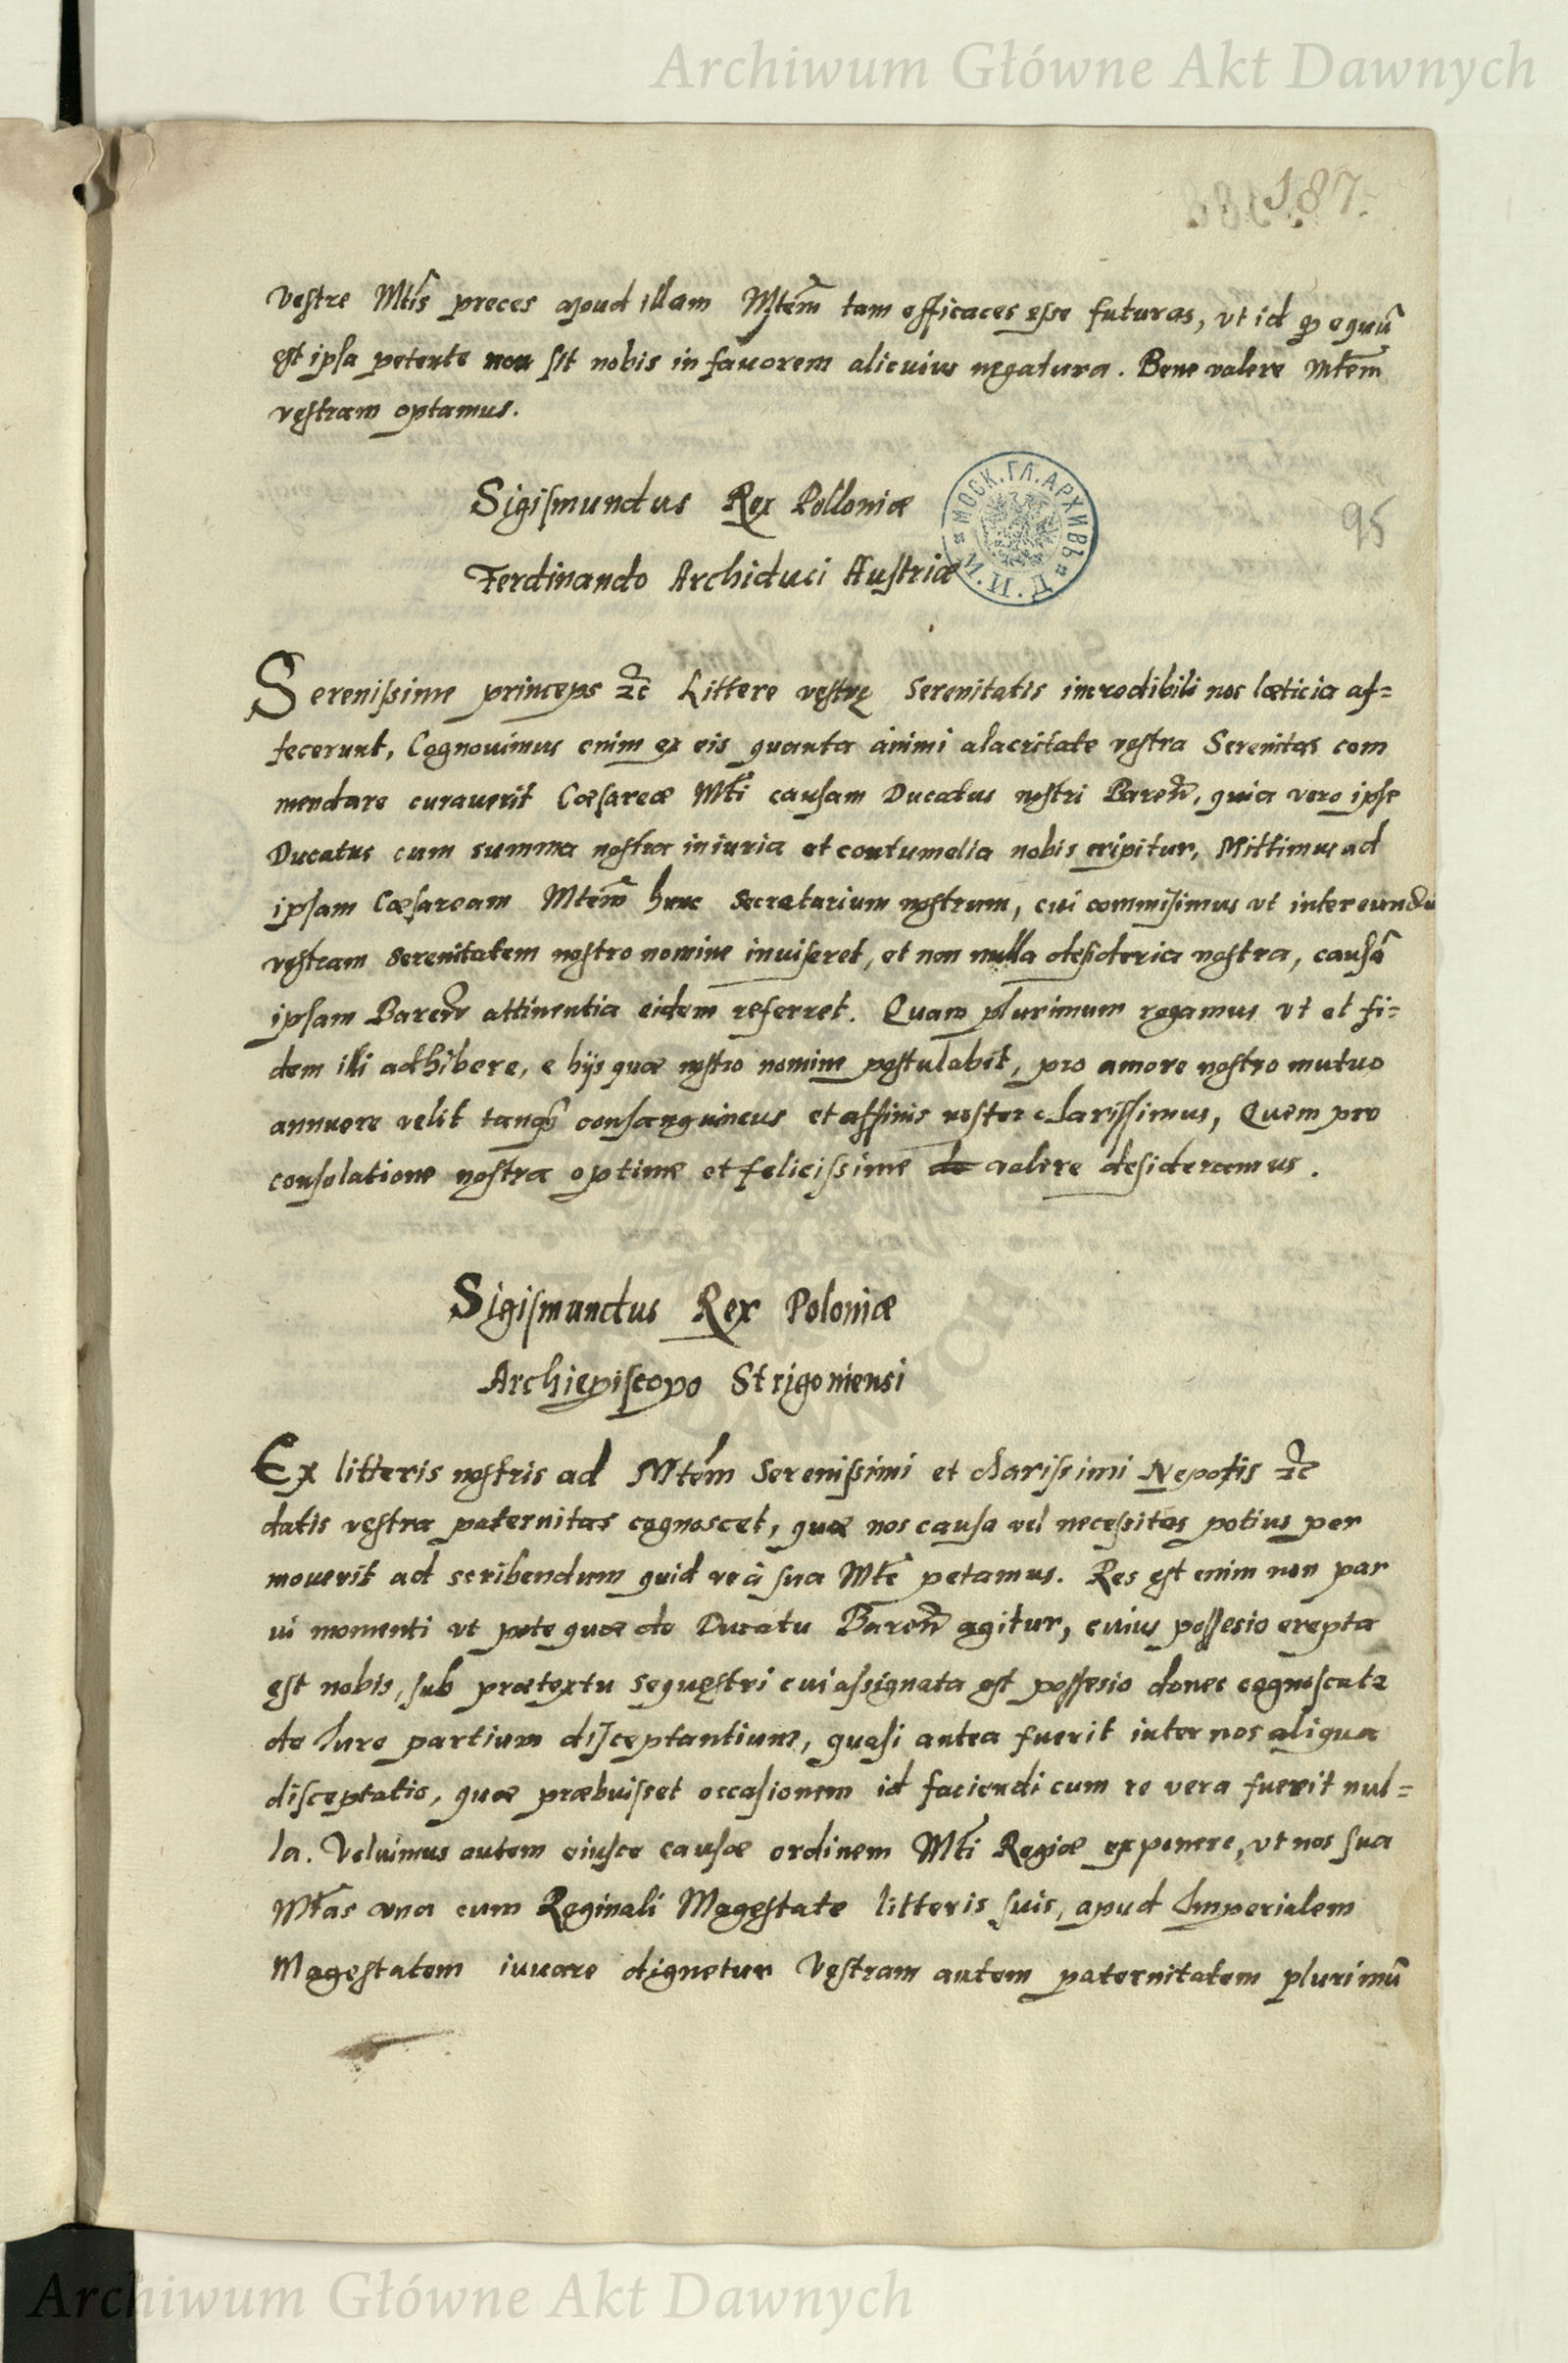 Archiwum Główne Akt Dawnych
187.
vestre Mtis preces apud illam Mtem tam efficaces esse futuras, vt id qd equũ
est ipsa petente non sit nobis in fauorem alicuius negatura. Bene valere Mtem
vestram optamus.
Sigismundus Rex Polloniæ
95
МОСК. ГЛ. АРХИВЪ
Ferdinando Archiduci Austriæ
Serenissime princeps etc Littere vestrę Serenitatis incredibili nos læticia af=
fecerunt, Cognouimus enim ex eis quanta animi alacritate vestra Serenitas com
mendare curauerit Cæsareæ Mti causam Ducatus nostri Bareñ, quia vero ipse
Ducatus cum summa nostra iniuria et contumelia nobis eripitur, Mittimus ad
ipsam Cæsaream Mtem hunc Secretarium nostrum, cui commisimus vt inter eundũ
vestram Serenitatem nostro nomine inuiseret, et non nulla desideria nostra, causã
ipsam Bareñ attinentia eidem referret. Quam plurimum rogamus vt et fi=
dem illi adhibere, e hijs quæ nostro nomine postulabit, pro amore nostro mutuo
annuere velit tanq̃ consanguineus et affinis noster clarissimus, Quem pro
consolatione nostra optime et felicissime de valere desideramus.
Sigismundus Rex Poloniæ
Archiepiscopo Strigoniensi
Ex litteris nostris ad Mtem Serenissimi et clarissimi Nepotis etc
datis vestra paternitas cognoscet, quæ nos causa vel necessitas potius per
mouerit ad scribendum quid ve à sua Mte petamus. Res est enim non par
ui momenti vt pote quæ de Ducatu Bareñ agitur, cuius possesio erepta
est nobis, sub prætextu sequestri cui assignata est possesio donec cognoscatr
de Iure partium disceptantium, quasi antea fuerit inter nos aliqua
disceptatio, quæ præbuisset occasionem id faciendi cum re vera fuerit nul=
la. Voluimus autem eiusce causæ ordinem Mti Regiæ exponere, vt nos sua
Mtas una cum Reginali Magestate litteris suis, apud Imperialem
Magestatem iuuare dignetur Vestram autem paternitatem plurimũ
Archiwum Główne Akt Dawnych